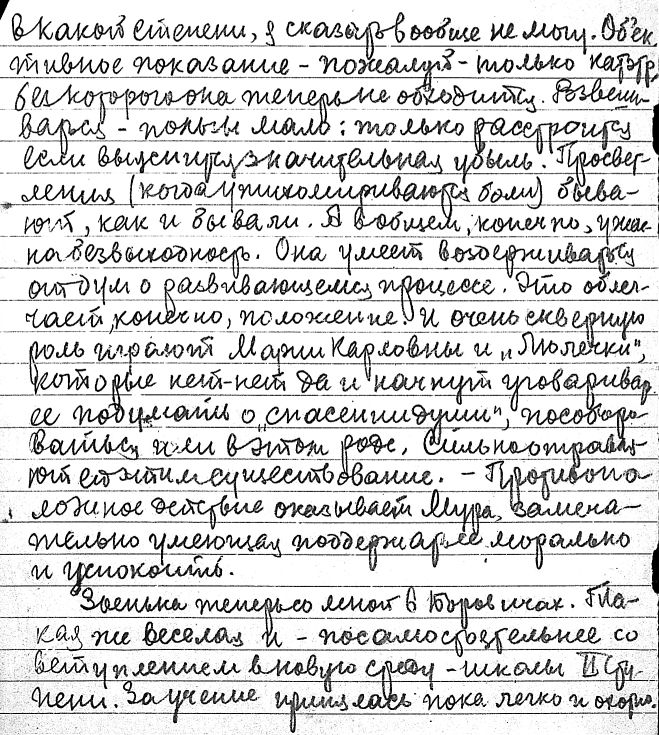 в какой степени, я сказать вообще не могу. Объек
тивное показание – пожалуй – только
без которого она теперь не обходится. Взвеши-
ваться – пользы мало: только расстроится
если выяснится значительная убыль. Просвет-
ления (когда утихомириваются боли) быва-
ют, как и бывали. А в общем, конечно, ужас-
на безвыходность. Она умеет воздерживаться
от дум о развивающемся процессе. Это облег-
чает, конечно, положение. И очень скверную
роль играют Марии Карловны и „Люлечки",
которые нет-нет да и начнут уговаривать
ее подумать о „спасении души", пособоро-
ваться или в этом роде. Сильно отравля-
ют ей этим существование. – Противопо
ложное действие оказывает Мура, замеча-
тельно умеющая поддержать ее морально
и успокоить.
Зоенька теперь со мной в Боровичах. Та-
кая же веселая и – посамостоятельнее со
вступлением в новую среду – школы II сту
пени. За учение принялась пока легко и охотно.